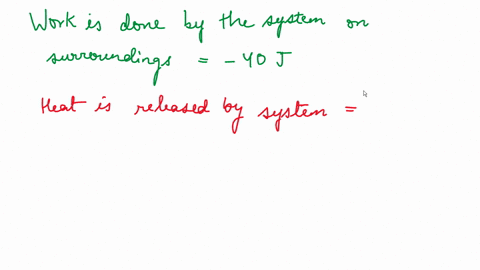 Work is done by the system on
surroundings = - 40 J
Heat is released by system =